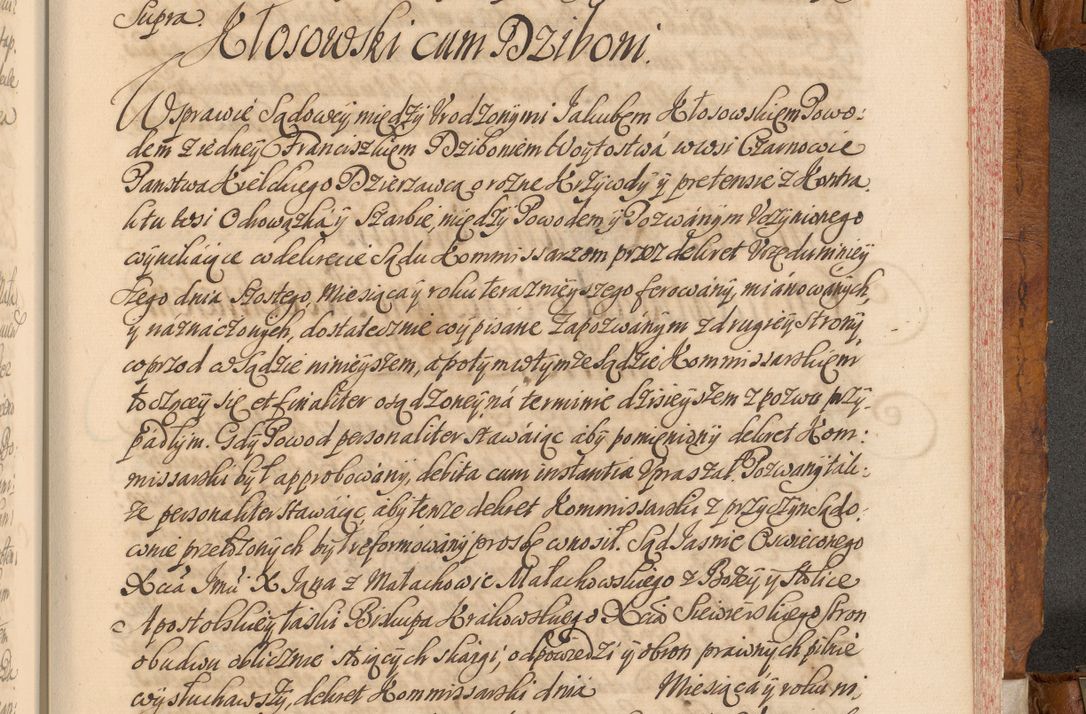 Supra.
Kłosowski cum Dziboni.
W sprawie Sądowey między Urodzonymi Jakubem Kłosowskiem Powo:
dem z iedney Franciszkiem Dziboniem Woytostwá w wsi Czarnowie
Panstwa Kielckiego Dzierzawcą o rożne Krzywdy y pretensie z Kontra
ktu wsi Chowązka y Skarbie, między Powodem y Pozwánym Uczynionego
wynikáiące w dekrecie Sądu Kommissarzom przez dekret Urzędu niniey
szego dnia szostego, Miesiąca y roku teraznieyszego ferowány, miánowánych,
y náznáczonych, dostatecznie wypisáne Zapozwánym z drugiey strony
co przod w Sądzie ninieyszem, a potym w tymże Sądzie Kommissarskiem
toczącey się et finaliter osądzoney, ná terminie dzisieyszem z pozwu przy-
padłym. Gdy Powod personaliter stawáiąc aby pomieniony dekret Kom:
missarski był approbowány, debita cum instantia Upraszał. Pozwany tak:
że personaliter stawáiąc, aby tenże dekret Kommissarski z przyczyn Sądo:
wnie przełożonych był reformowány prosbę wnosił. Sąd Jasnie Oswieconego
Xcia Jmci X Jana z Małachowic Małachowskiego z Bożey y Stolice
Apostolskiey łaski Biskupa Krakowskiego Xcia Siewierskiego stron
obudwu oblicznie stoiących skargi, odpowiedzi y obron prawnych pilnie
wysłuchawszy, dekret Kommissarski dnia Miesiąca y roku ni,